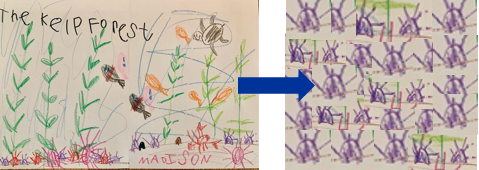 The Kelp Forest
MADISON